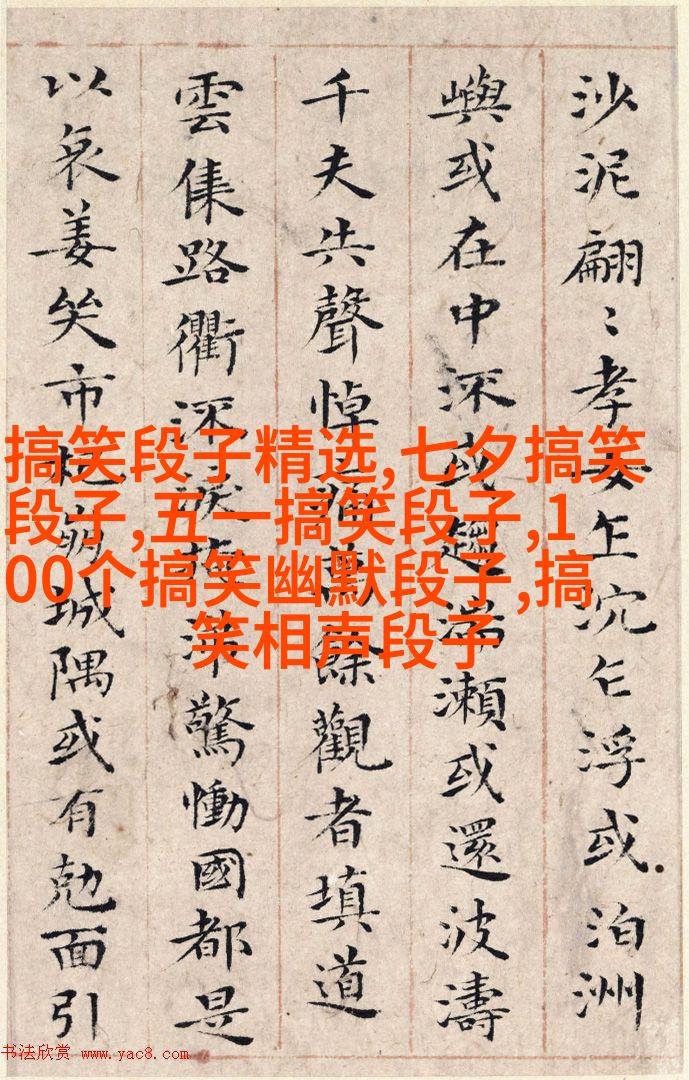 沙泥翩〻孝女乍沉乍浮或泊洲
嶼或在中流或趍湍瀨或還波濤
千夫失聲悼痛萬餘觀者填道
雲集路衢流淚掩涕驚慟國都是
以哀姜哭市杞崩城隅或有剋面引
搞笑段子精选,七夕搞笑
段子,五一搞笑段子,1
00个搞笑幽默段子,搞
笑相声段子
书法欣赏 www.yac8.com